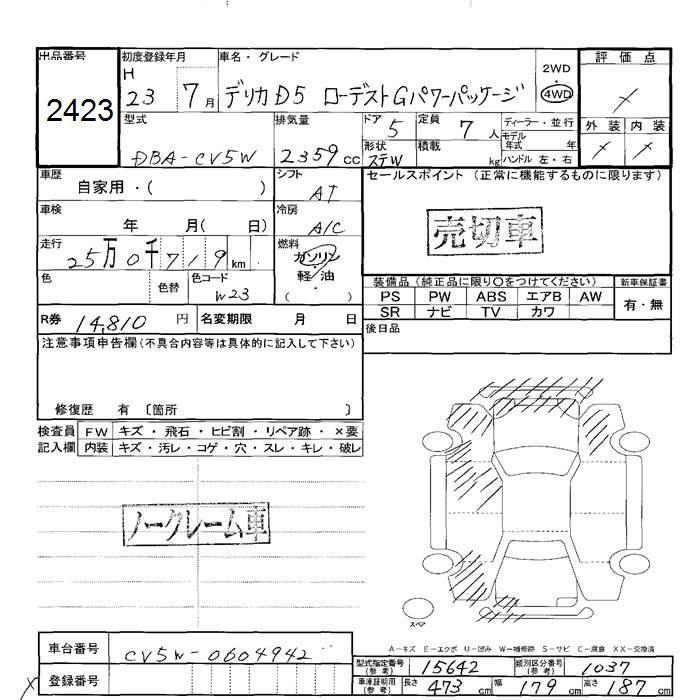 出品番号
2423
初度登録年月
H 23 7月
車名・グレード
デリカD5 ローデストGパワーパッケージ
2WD
4WD
評価点
×
外装 内装
× ×
型式
DBA-CV5W
排気量
2359cc
ドア 5
定員 7人
形状 ステW
積載 kg
ディーラー・並行
モデル年式 年
ハンドル 左・右
車歴
自家用・( )
シフト
AT
車検
年 月( 日)
冷房
A/C
走行
25万0千719km
燃料
ガソリン
軽・油
( )
色
色替
色コード
W23
R券 14,810円
名変期限 月 日
セールスポイント (正常に機能するものに限ります)
売切車
装備品(純正品に限り○をつけてください)
新車保証書
PS PW ABS エアB AW
SR ナビ TV カワ
有・無
後日品
注意事項申告欄(不具合内容等は具体的に記入して下さい)
修復歴 有 〔箇所 〕
検査員記入欄
FW キズ・飛石・ヒビ割・リペア跡・×要
内装 キズ・汚レ・コゲ・穴・スレ・キレ・破レ
ノークレーム車
スペア
A-キズ E-エクボ U-凹み W-補修跡 S-サビ C-腐食 XX-交換済
車台番号 CV5W-0604942
登録番号
型式指定番号(参考) 15642
類別区分番号(参考) 1037
車庫証明用(参考) 長さ 473cm 幅 179cm 高さ 187cm